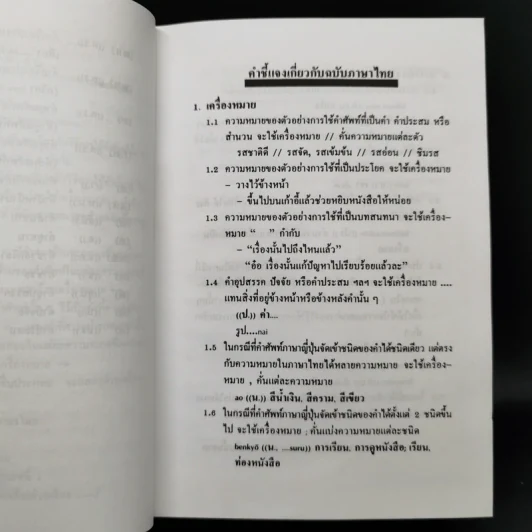 คำชี้แจงเกี่ยวกับฉบับภาษาไทย
1. เครื่องหมาย
1.1 ความหมายของตัวอย่างการใช้คำศัพท์ที่เป็นคำ คำประสม หรือ
สำนวน จะใช้เครื่องหมาย // คั่นความหมายแต่ละตัว
รสชาติดี // รสจัด, รสเข้มข้น // รสอ่อน // ชิมรส
1.2 ความหมายของตัวอย่างการใช้ที่เป็นประโยค จะใช้เครื่องหมาย
– วางไว้ข้างหน้า
– ขึ้นไปบนเก้าอี้แล้วช่วยหยิบหนังสือให้หน่อย
1.3 ความหมายของตัวอย่างการใช้ที่เป็นบทสนทนา จะใช้เครื่อง–
หมาย “ ” กำกับ
– “เรื่องนั้นไปถึงไหนแล้ว”
“อ๋อ เรื่องนั้นแก้ปัญหาไปเรียบร้อยแล้วละ”
1.4 คำอุปสรรค ปัจจัย หรือคำประสม ฯลฯ จะใช้เครื่องหมาย ....
แทนสิ่งที่อยู่ข้างหน้าหรือข้างหลังคำนั้น ๆ
((ป.)) คำ....
รูป....nai
1.5 ในกรณีที่คำศัพท์ภาษาญี่ปุ่นจัดเข้าชนิดของคำได้ชนิดเดียว แต่ตรง
กับความหมายในภาษาไทยได้หลายความหมาย จะใช้เครื่อง–
หมาย , คั่นแต่ละความหมาย
ao ((น.)) สีน้ำเงิน, สีคราม, สีเขียว
1.6 ในกรณีที่คำศัพท์ภาษาญี่ปุ่นจัดเข้าชนิดของคำได้ตั้งแต่ 2 ชนิดขึ้น
ไป จะใช้เครื่องหมาย ; คั่นแบ่งความหมายแต่ละชนิด
benkyō ((น., ....suru)) การเรียน, การดูหนังสือ; เรียน,
ท่องหนังสือ